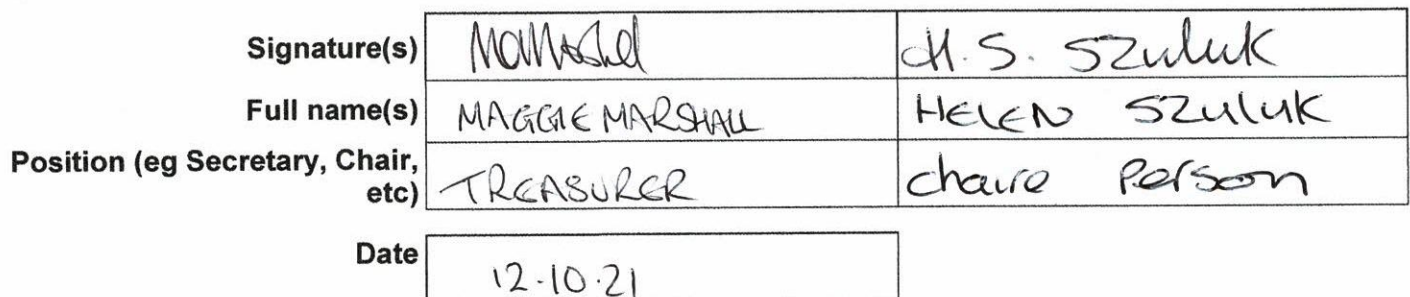 Signature(s) H.S. Szuluk
Full name(s) MAGGIE MARSHALL HELEN SZULUK
Position (eg Secretary, Chair,
etc) TREASURER chaire Person
Date 12.10.21